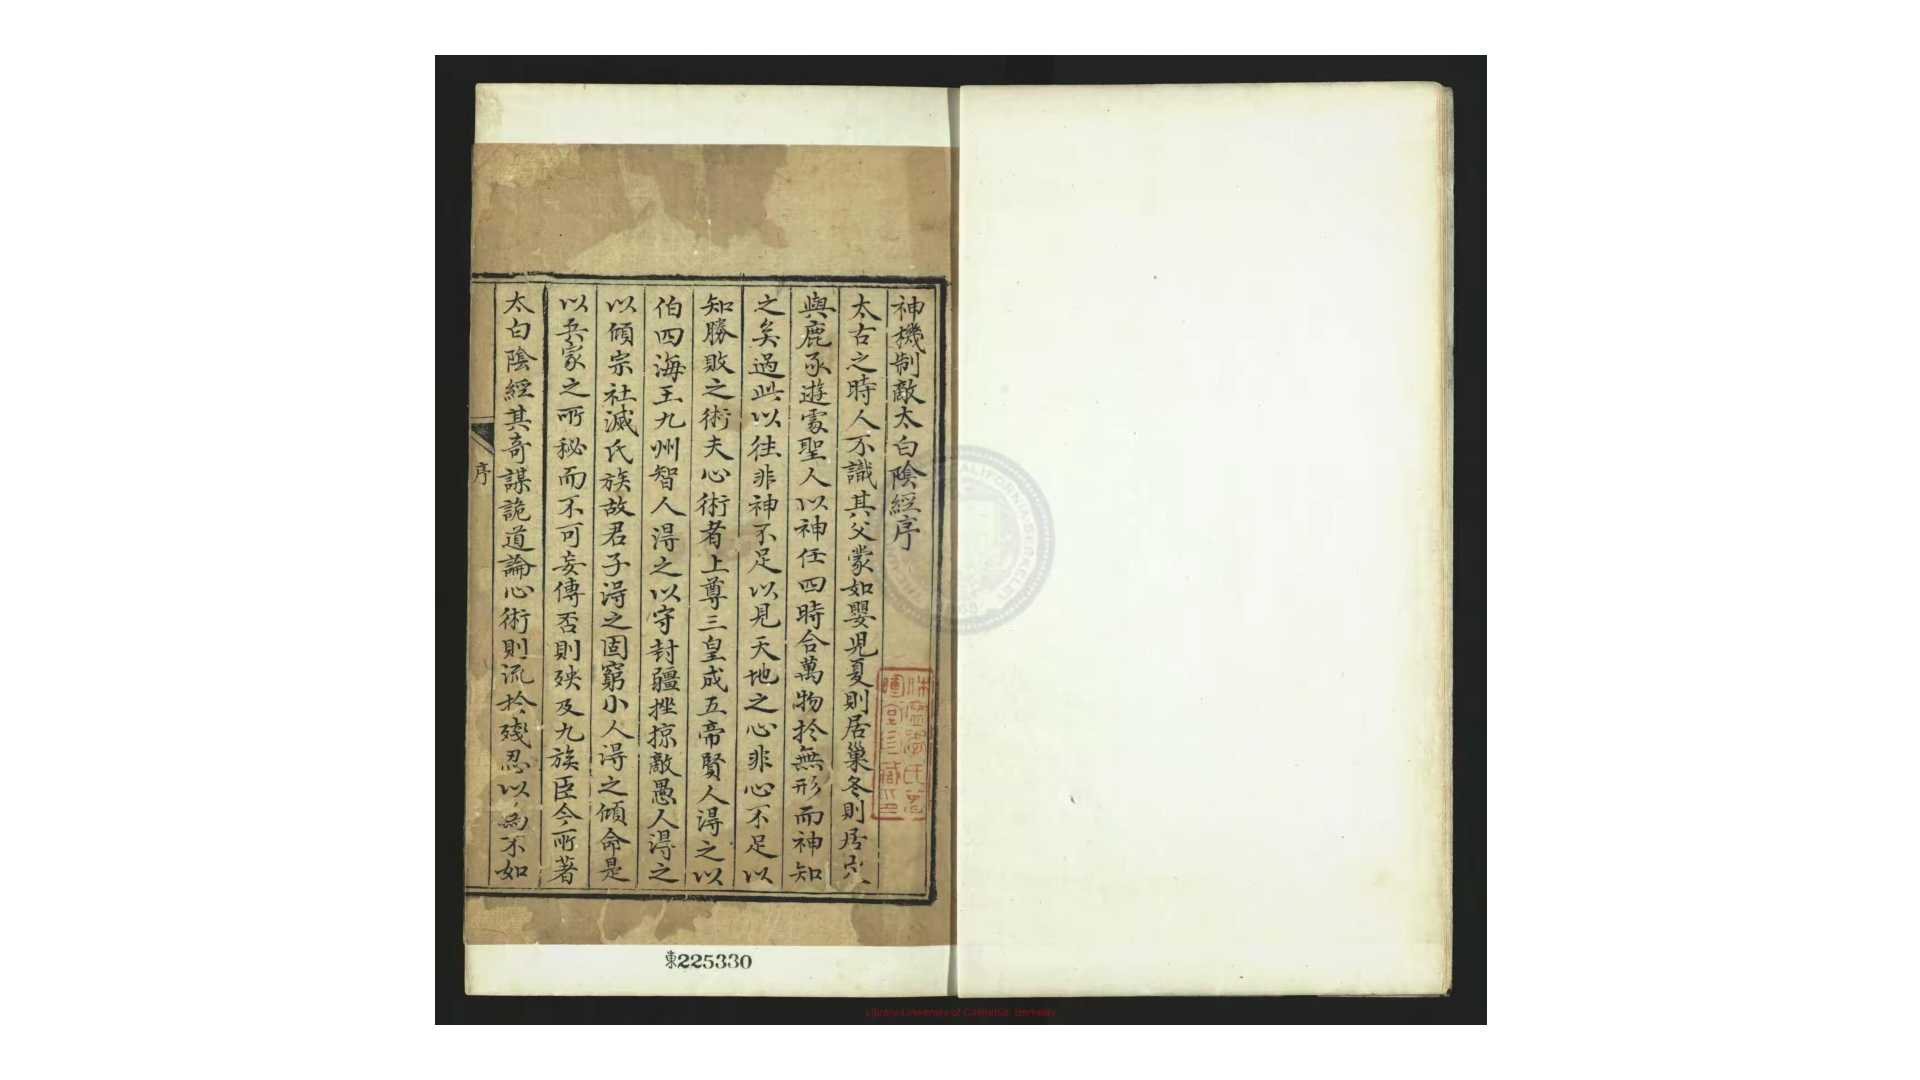 神機制敵太白陰經序
太古之時人不識其父蒙如嬰兒夏則居巢冬則居穴
與鹿豕遊處聖人以神任四時合萬物於無形而神知
之矣過此以往非神不足以見天地之心非心不足以
知勝敗之術夫心術者上尊三皇成五帝賢人得之以
伯四海王九州智人得之以守封疆挫掠敵愚人得之
以傾宗社滅氏族故君子得之固窮小人得之傾命是
以兵家之所秘而不可妄傳否則殃及九族臣今所著
太白陰經其奇謀詭道論心術則流於殘忍以為不如
序
東225330
Library University of California, Berkeley